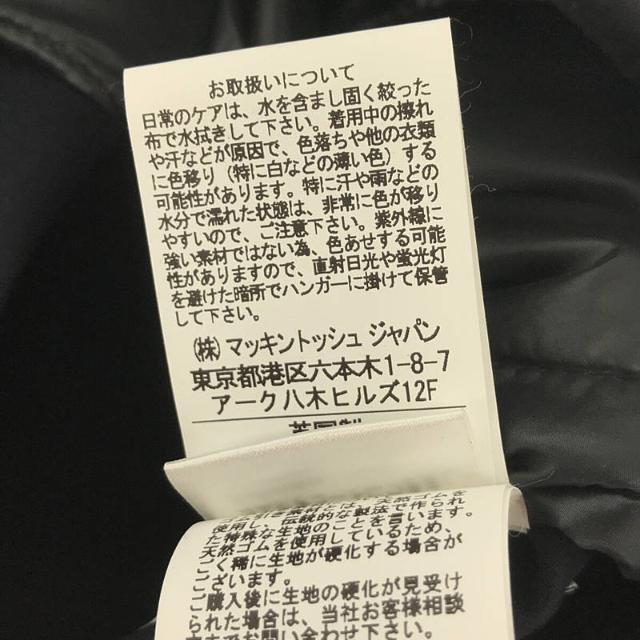 お取扱いについて
日常のケアは、水を含まし固く絞った
布で水拭きして下さい。着用中の擦れ
や汗などが原因で、色落ちや他の衣類
に色移り（特に白などの薄い色）する
可能性があります。特に汗や雨などの
水分で濡れた状態は、非常に色が移り
やすいので、ご注意下さい。紫外線に
強い素材ではない為、色あせする可能
性がありますので、直射日光や蛍光灯
を避けた暗所でハンガーに掛けて保管
して下さい。
（株）マッキントッシュ ジャパン
東京都港区六本木1-8-7
アーク八木ヒルズ12F
英国製
天然ゴムを
使用し、伝統的な製法で作られ
た特殊な生地のことを言います。
天然ゴムを使用しているため、
ごく稀に生地が硬化する場合が
ございます。
ご購入後に生地の硬化が見受け
られた場合は、当社お客様相談
までお問い合わせ下さい。